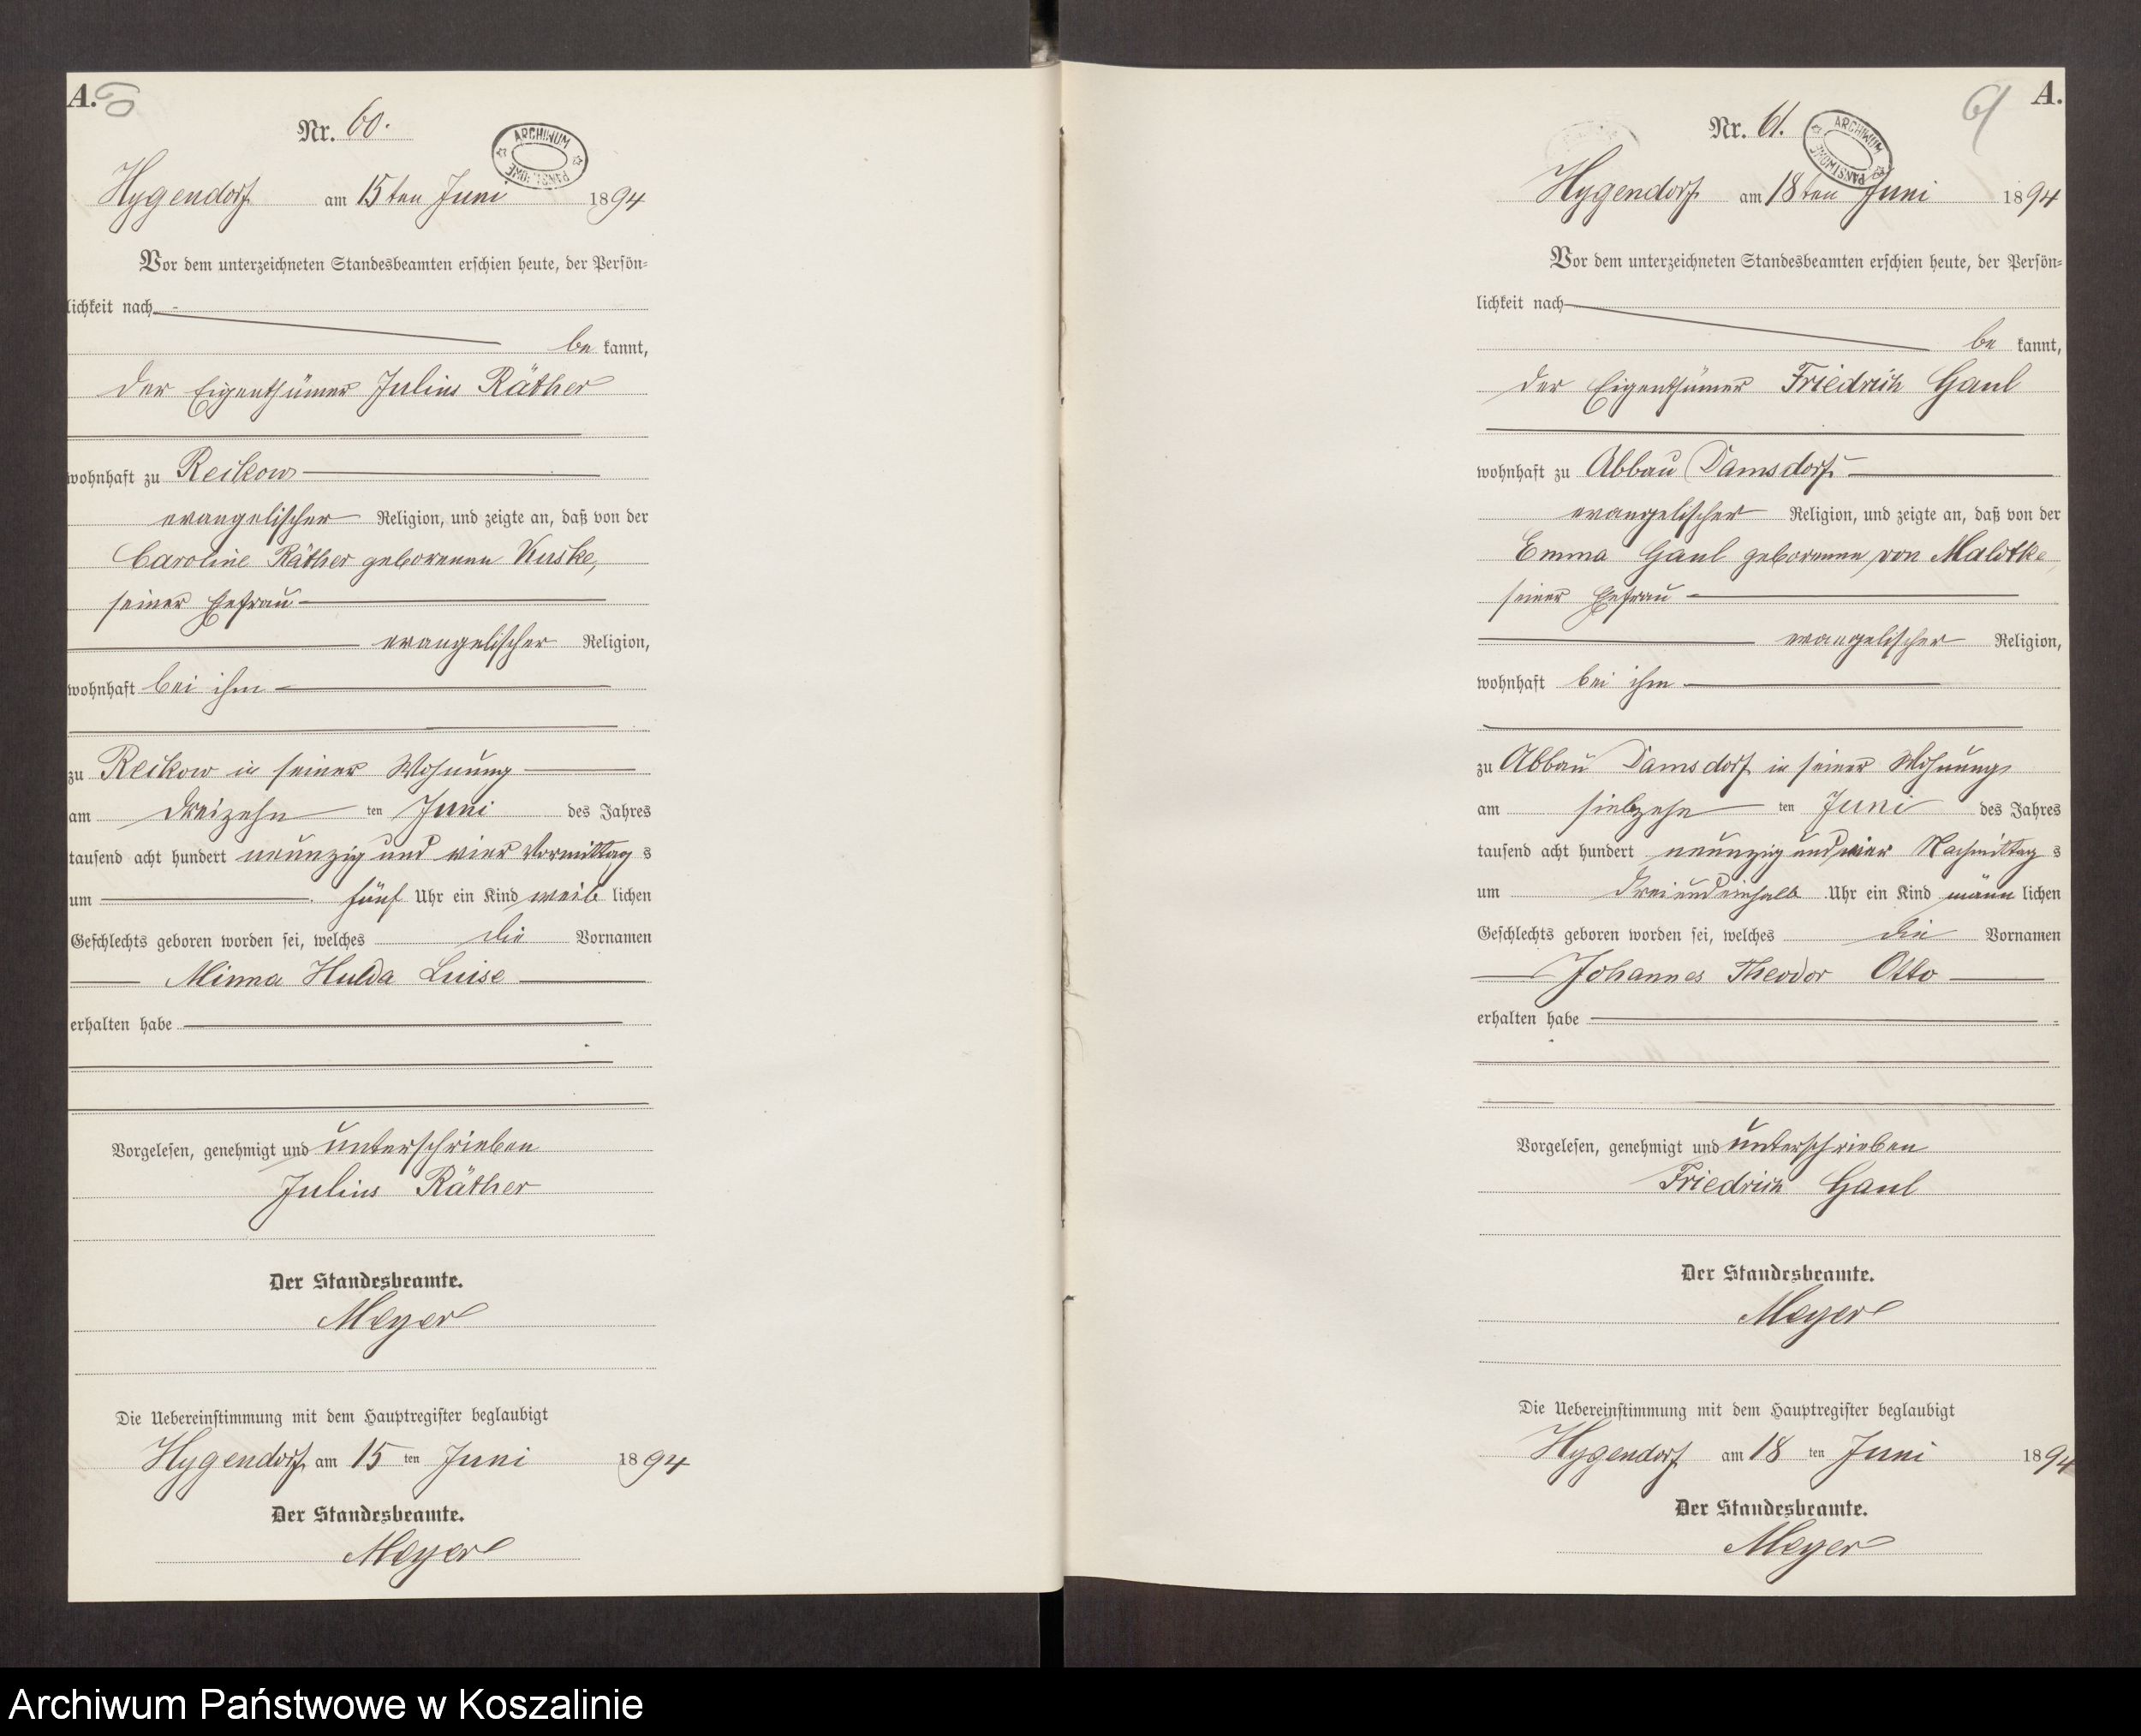 A. 60
Nr. 60.
ARCHIWUM PAŃSTWOWE
Hygendorf am 15ten Juni 1894
Vor dem unterzeichneten Standesbeamten erschien heute, der Persön=
lichkeit nach
be kannt,
der Eigenthümer Julius Räther
wohnhaft zu Reckow
evangelischer Religion, und zeigte an, daß von der
Caroline Räther geborenen Kuske,
seiner Ehefrau
evangelischer Religion,
wohnhaft bei ihm
zu Reckow in seiner Wohnung
am dreizehn ten Juni des Jahres
tausend acht hundert neunzig und vier Vormittag s
um fünf Uhr ein Kind weib lichen
Geschlechts geboren worden sei, welches die Vornamen
Minna Hulda Luise
erhalten habe
Vorgelesen, genehmigt und unterschrieben
Julius Räther
Der Standesbeamte.
Meyer
Die Uebereinstimmung mit dem Hauptregister beglaubigt
Hygendorf am 15 ten Juni 1894
Der Standesbeamte.
Meyer
61 A.
Nr. 61.
ARCHIWUM PAŃSTWOWE
Hygendorf am 18ten Juni 1894
Vor dem unterzeichneten Standesbeamten erschien heute, der Persön=
lichkeit nach
be kannt,
der Eigenthümer Friedrich Gaul
wohnhaft zu Abbau Damsdorf
evangelischer Religion, und zeigte an, daß von der
Emma Gaul geborenen von Malotke,
seiner Ehefrau
evangelischer Religion,
wohnhaft bei ihm
zu Abbau Damsdorf in seiner Wohnung
am siebzehn ten Juni des Jahres
tausend acht hundert neunzig und vier Nachmittag s
um dreiundeinhalb Uhr ein Kind männ lichen
Geschlechts geboren worden sei, welches die Vornamen
Johannes Theodor Otto
erhalten habe
Vorgelesen, genehmigt und unterschrieben
Friedrich Gaul
Der Standesbeamte.
Meyer
Die Uebereinstimmung mit dem Hauptregister beglaubigt
Hygendorf am 18 ten Juni 1894
Der Standesbeamte.
Meyer
Archiwum Państwowe w Koszalinie